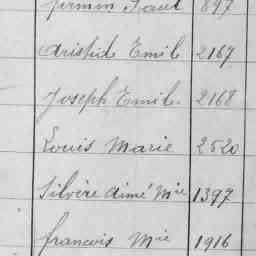 Firmin Paul 897
Aristide Emile 2167
Joseph Emile. 2168
Louis Marie 2520
Silvère Aimé Mie 1397
François Mie 1916